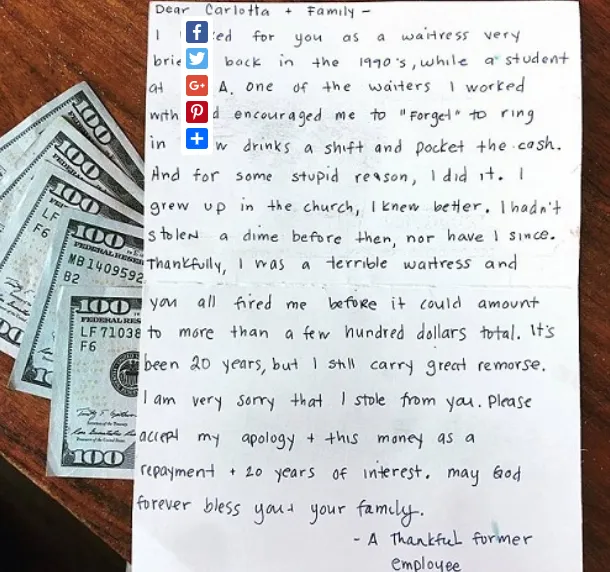 Dear Carlotta + Family -
I for you as a waitress very
back in the 1990's, while a student
at A. One of the waiters I worked
with encouraged me to "Forget" to ring
in drinks a shift and pocket the cash.
And for some stupid reason, I did it. I
grew up in the church, I knew better. I hadn't
stolen a dime before then, nor have I since.
Thankfully, I was a terrible waitress and
you all fired me before it could amount
to more than a few hundred dollars total. It's
been 20 years, but I still carry great remorse.
I am very sorry that I stole from you. Please
accept my apology + this money as a
repayment + 20 years of interest. may God
forever bless you + your family.
- A Thankful former
employee
100
100
100
LF
F6
100
FEDERAL RESERVE
MB 1409592
B2
100
FEDERAL RES
LF 71038
F6
100